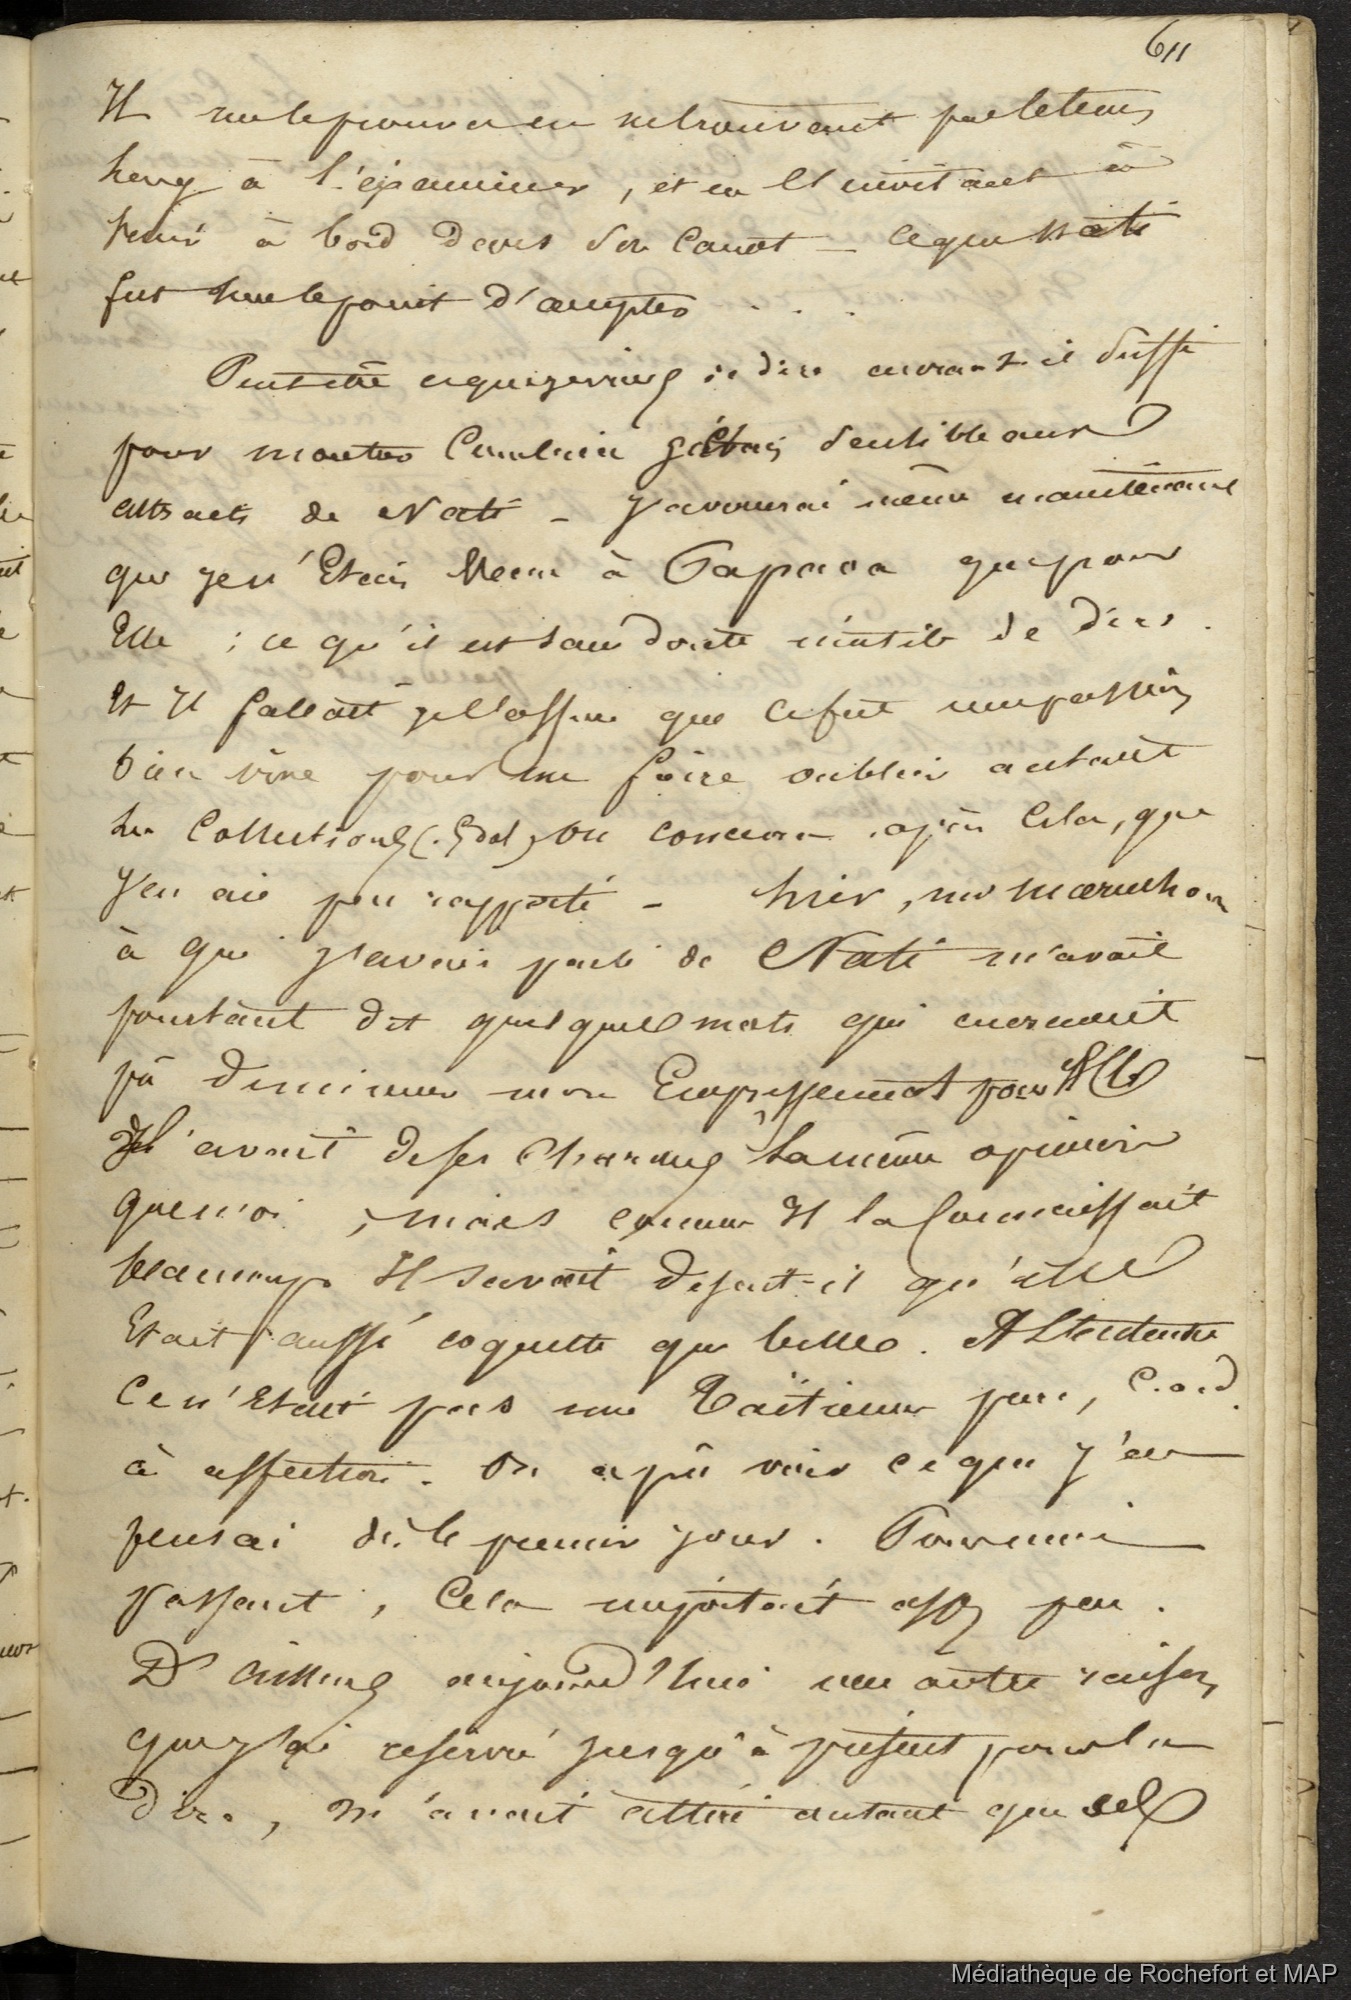 611
Il me le prouva en me trouvant par le tems
à l'examiner, et en l'invitant à
venir à bord dans son canot — ce que Nati
fut sur le point d'accepter . . .
Peut être ce que je viens de dire, aurait-il suffi
pour montrer combien j'étais sensible aux
attraits de Nati — J'avouerai même maintenant
que je n'Etais Venu à Papara que pour
Elle ; ce qu'il est sans doute inutile de dire.
Et Il fallait que ce fut une passion
bien vive pour me faire oublier autant
les Collections on concevra après cela, que
J'en aie peu rapporté — hier, mr
à qui J'avais parlé de Nati m'avait
pourtant dit quelques mots qui auraient
pû diminuer mon Empressement pour Elle
Il avait de ses Charmes la même opinion
que moi ; mais comme Il la Connaissait
beaucoup Il savait disait-il qu'elle
Etait aussi coquette que belle. A l'entendre
Ce n'Etait pas une Taïtienne pure, c. a. d.
à affection. On a pû voir ce que J'en
pensai dès le premier jour. Pour moi
passant, Cela importait assez peu.
D'ailleurs aujourd'hui une autre raison
que J'ai reservé jusqu'à présent pour la
dire, m'avait attiré autant que